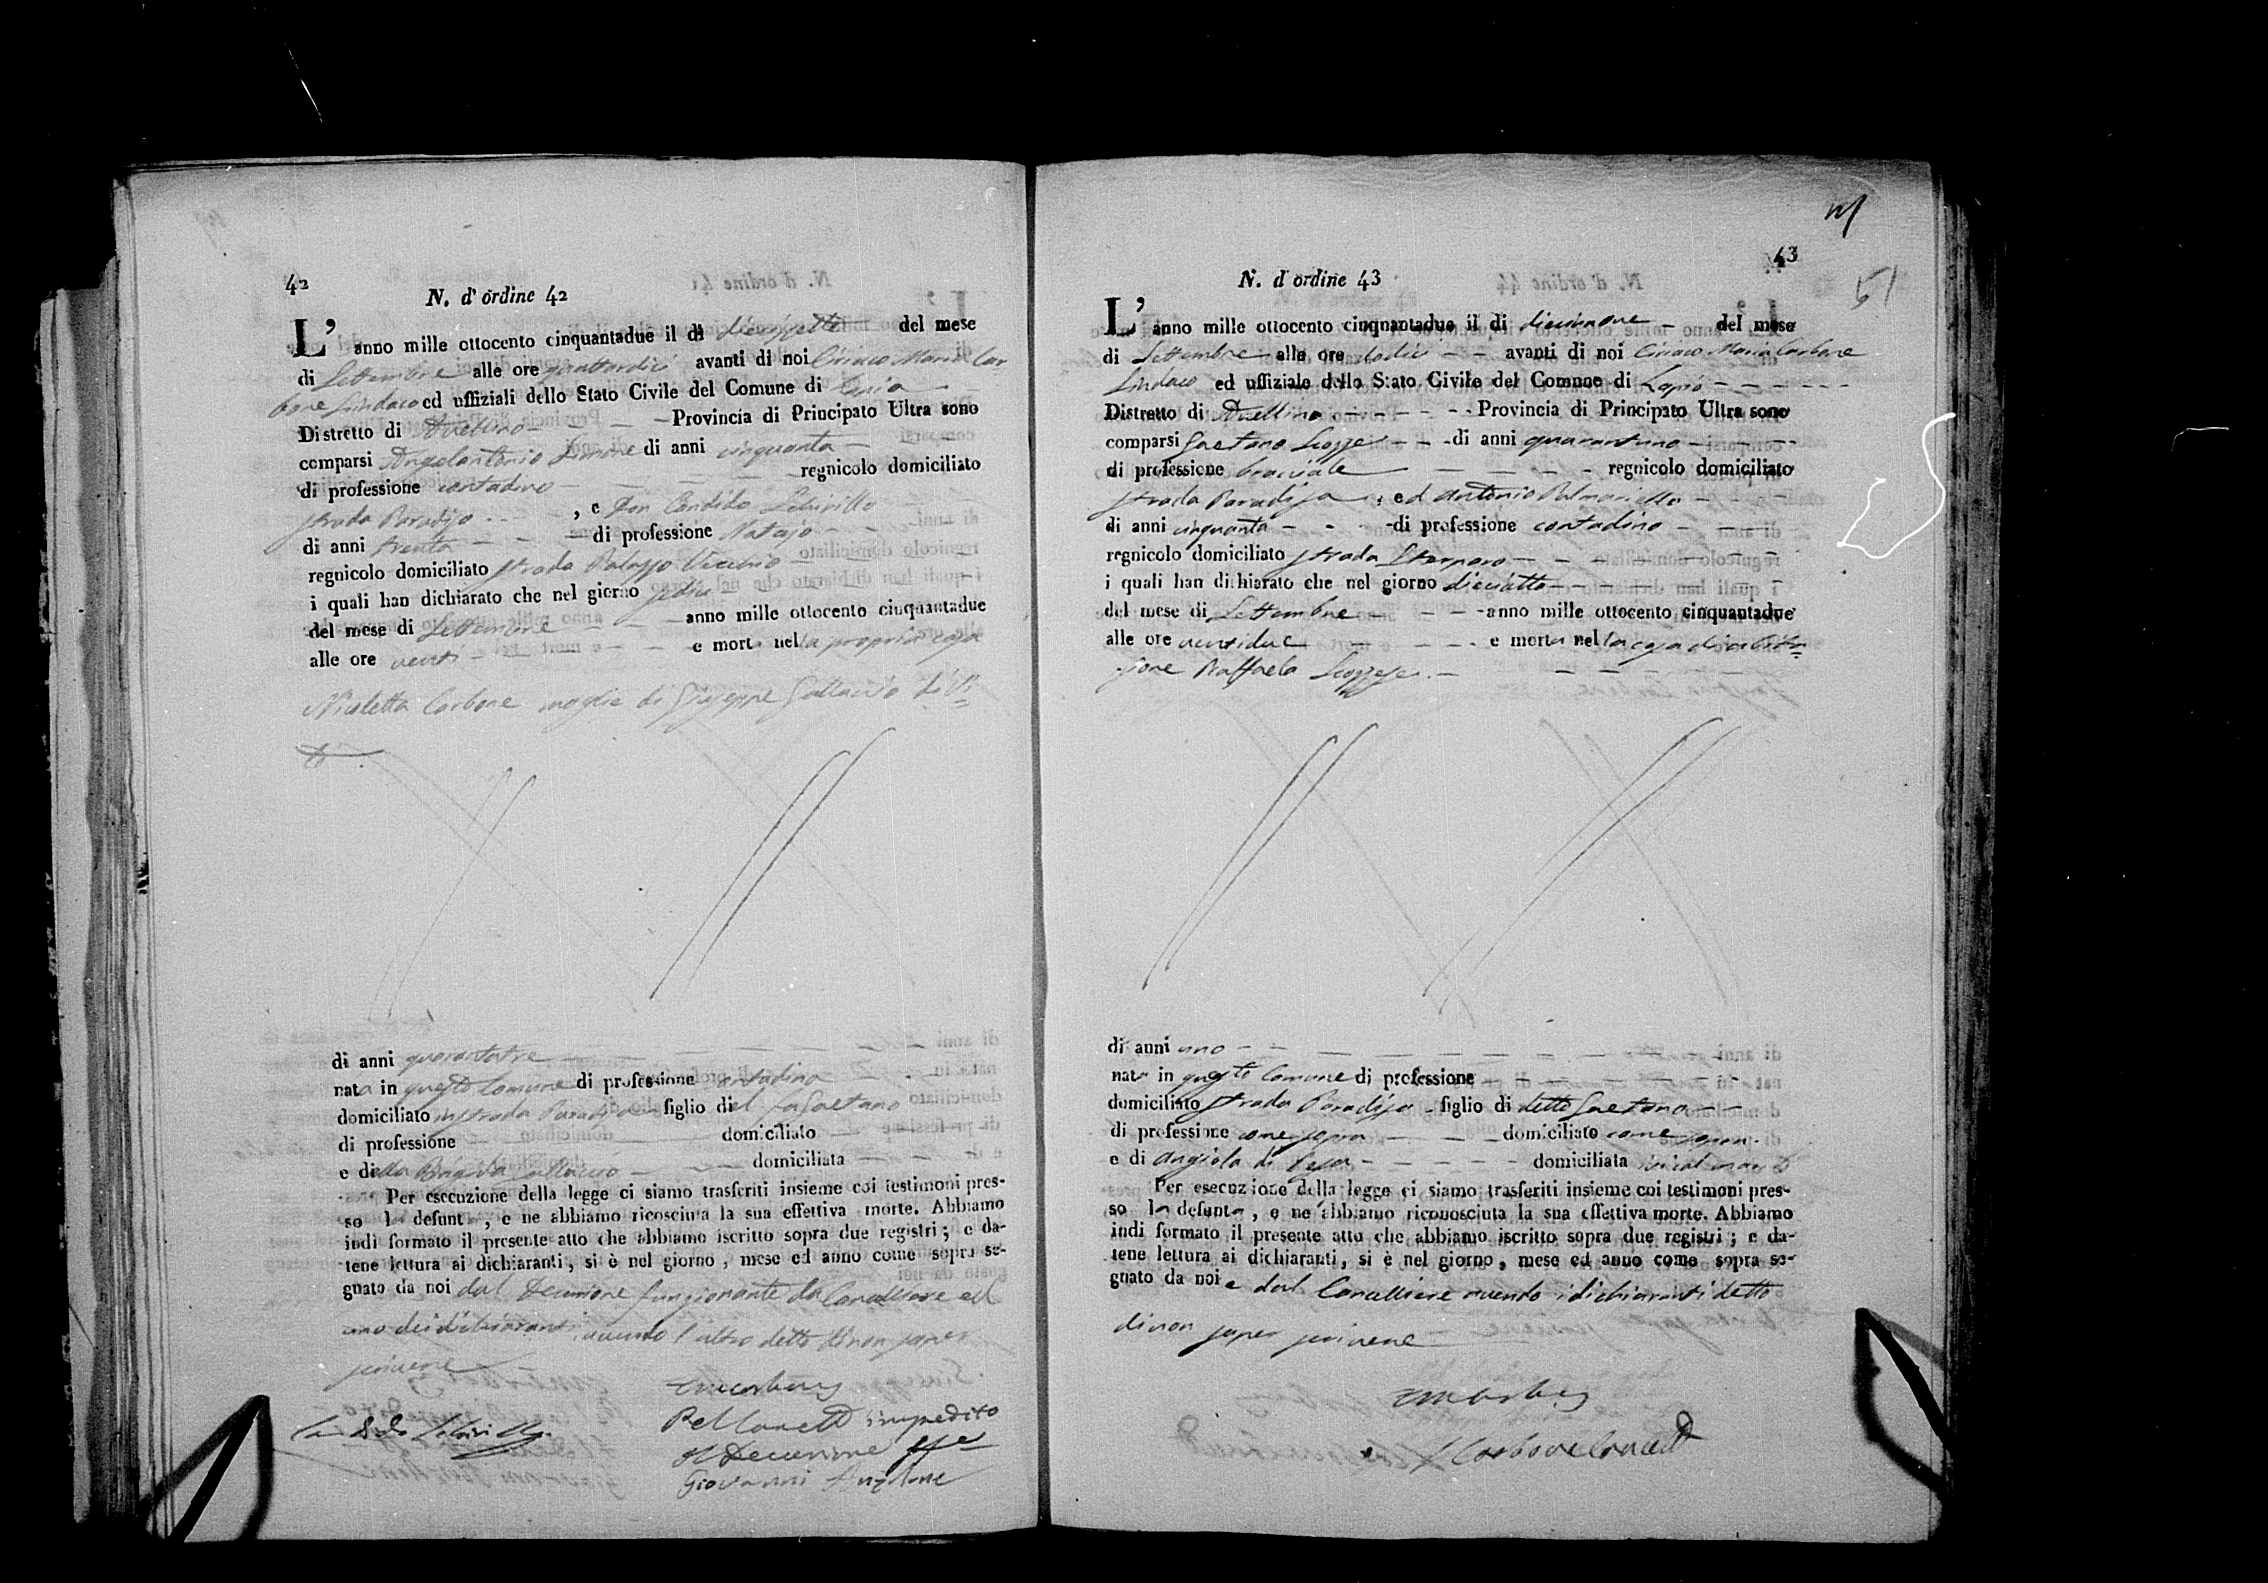 42
N. d' ordine 42
L' anno mille ottocento cinquantadue il di diecisette del mese
di Settembre alle ore quattordici avanti di noi Ciriaco Maria Car
bone Sindaco ed uffiziali dello Stato Civile del Comune di Lapio
Distretto di Avellino Provincia di Principato Ultra sono
comparsi Angelantonio di anni cinquanta
di professione contadino regnicolo domiciliato
strada Paradiso , e Don Candido
di anni trenta di professione Notajo
regnicolo domiciliato strada Palazzo Vecchio
i quali han dichiarato che nel giorno sedici
del mese di Settembre anno mille ottocento cinquantadue
alle ore venti e mort nella propria casa
Nicoletta Carbone moglie di Giuseppe Galluccio di Vi=
to
di anni quarantatre
nata in questo Comune di professione contadina
domiciliato in strada Paradiso figlio del fu Gaetano
di professione domiciliato
e della Brigida Galluccio domiciliata
Per esecuzione della legge ci siamo trasferiti insieme coi testimoni pres-
so la defunta, e ne abbiamo ricosciuta la sua effettiva morte. Abbiamo
indi formato il presente atto che abbiamo iscritto sopra due registri; e da-
tene lettura ai dichiaranti, si è nel giorno, mese ed anno come sopra se-
gnato da noi dal Decurione funzionante da Cancelliere ed
uno dei dichiaranti avendo l'altro detto di non saper
scrivere
impedito
Il Decurione
Candido
Giovanni
43
51
N. d' ordine 43
L' anno mille ottocento cinquantadue il di diecinnove del mese
di Settembre alle ore dodici avanti di noi Ciriaco Maria Carbone
Sindaco ed uffiziale dello Stato Civile del Comune di Lapio
Distretto di Avellino Provincia di Principato Ultra sono
comparsi Gaetano Scozzese di anni quarantuno
di professione bracciale regnicolo domiciliato
strada Paradiso , ed Antonio Palmariello
di anni cinquanta di professione contadino
regnicolo domiciliato strada
i quali han dichiarato che nel giorno dieciotto
del mese di Settembre anno mille ottocento cinquantadue
alle ore ventidue e morta nella casa di abita=
zione Raffaela Scozzese
di anni uno
nata in questo Comune di professione
domiciliato strada Paradiso figlio di detto Gaetano
di professione come sopra domiciliato come sopra
e di Angiola di domiciliata
Per esecuzione della legge ci siamo trasferiti insieme coi testimoni pres-
so la defunta, e ne abbiamo riconosciuta la sua effettiva morte. Abbiamo
indi formato il presente atto che abbiamo iscritto sopra due registri; e da-
tene lettura ai dichiaranti, si è nel giorno, mese ed anno come sopra se-
gnato da noi e dal Cancelliere avendo i dichiaranti detto
di non saper scrivere